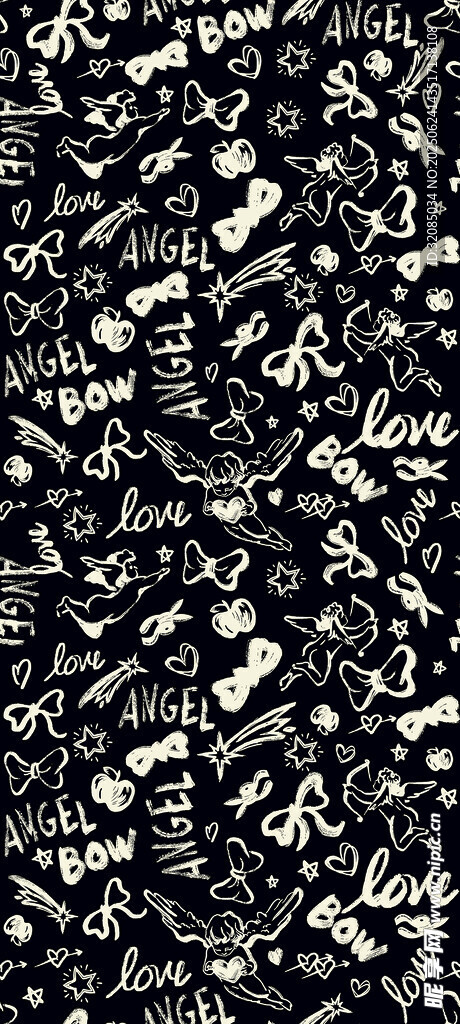 ANGEL
BOW
ANGEL
love
ANGEL
love
ANGEL
ANGEL
ANGEL
BOW
love
BOW
love
love
love
ANGEL
love
ANGEL
ANGEL
ANGEL
BOW
love
BOW
love
love
ANGEL
ID:32085034 NO:20250624143517138108
昵享网 www.nipic.cn